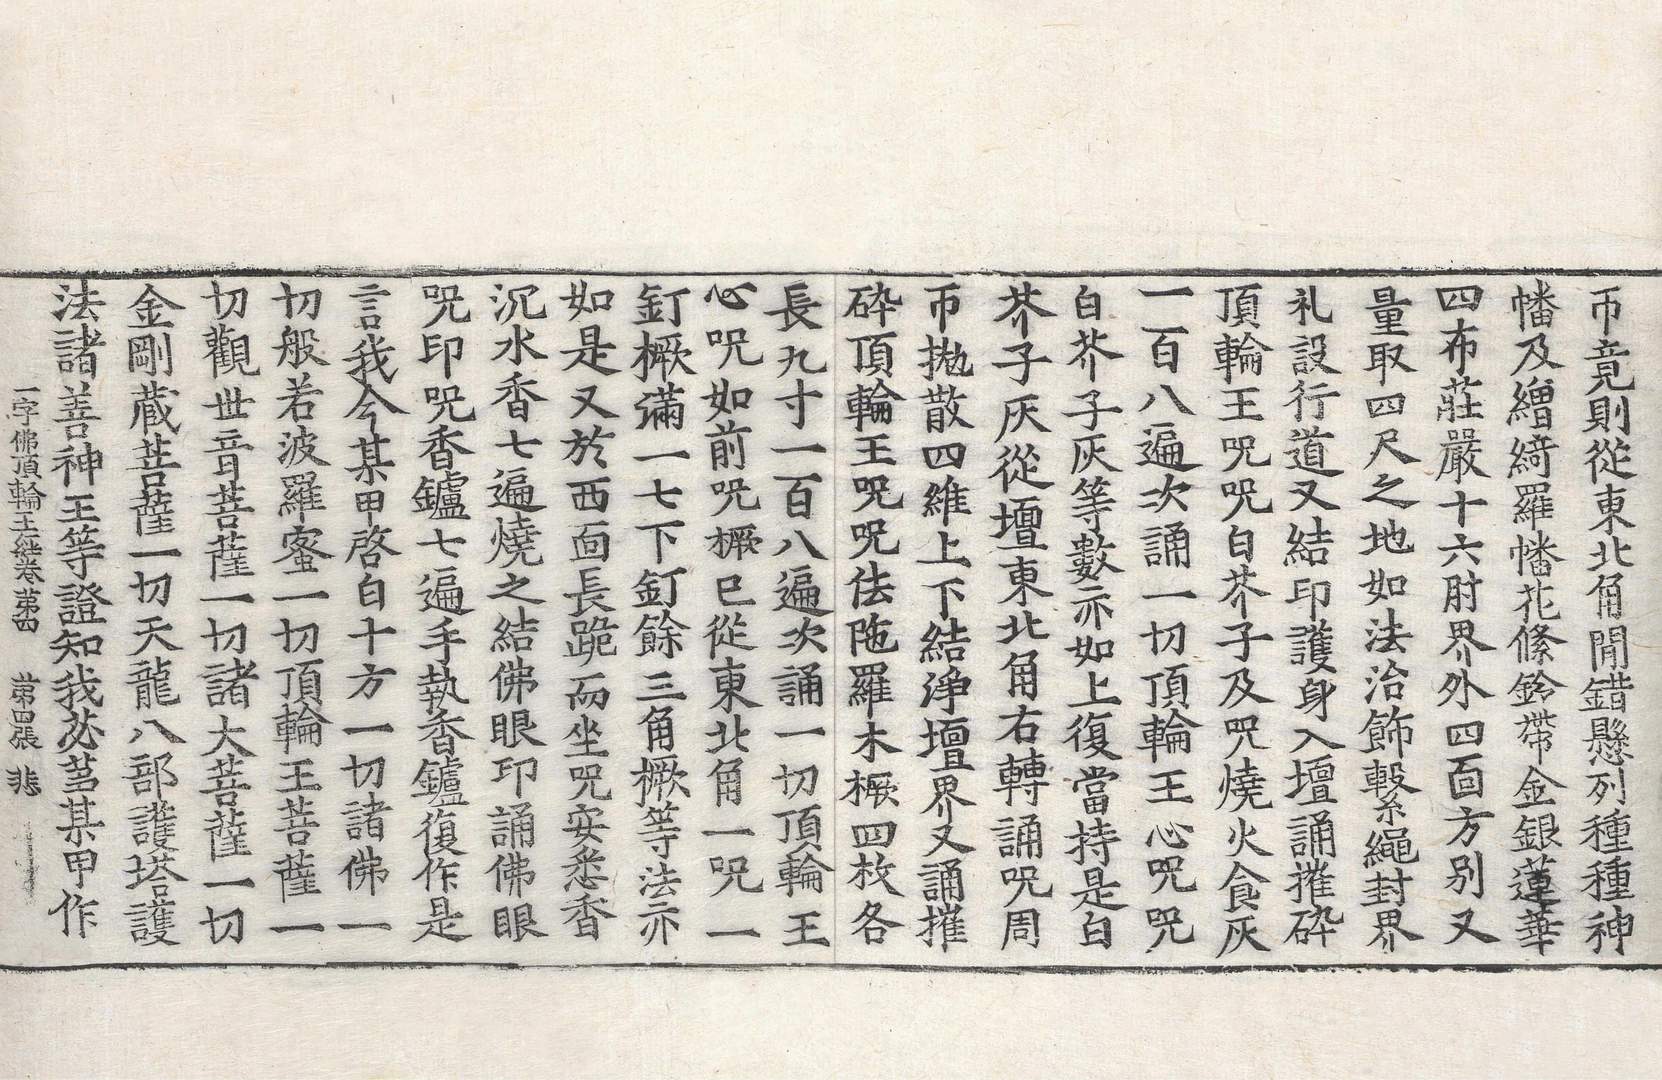 帀竟則從東北角閒錯懸列種種神
幡及繒綺羅幡花絛鈴帶金銀蓮華
四布莊嚴十六肘界外四面方別又
量取四尺之地如法治飾繫繩封界
礼設行道又結印護身入壇誦摧碎
頂輪王呪呪白芥子及呪燒火食灰
一百八遍次誦一切頂輪王心呪呪
白芥子灰等數亦如上復當持是白
芥子灰從壇東北角右轉誦呪周
帀拋散四維上下結淨壇界又誦摧
碎頂輪王呪呪佉陁羅木橛四枚各
長九寸一百八遍次誦一切頂輪王
心呪如前呪橛已從東北角一呪一
釘橛滿一七下釘餘三角橛等法亦
如是又於西面長跪而坐呪安悉香
沉水香七遍燒之結佛眼印誦佛眼
呪印呪香鑪七遍手執香鑪復作是
言我今某甲啓白十方一切諸佛一
切般若波羅蜜一切頂輪王菩薩一
切觀世音菩薩一切諸大菩薩一切
金剛藏菩薩一切天龍八部護塔護
法諸善神王等證知我苾芻某甲作
一字佛頂輪王經卷第四 第四張 悲